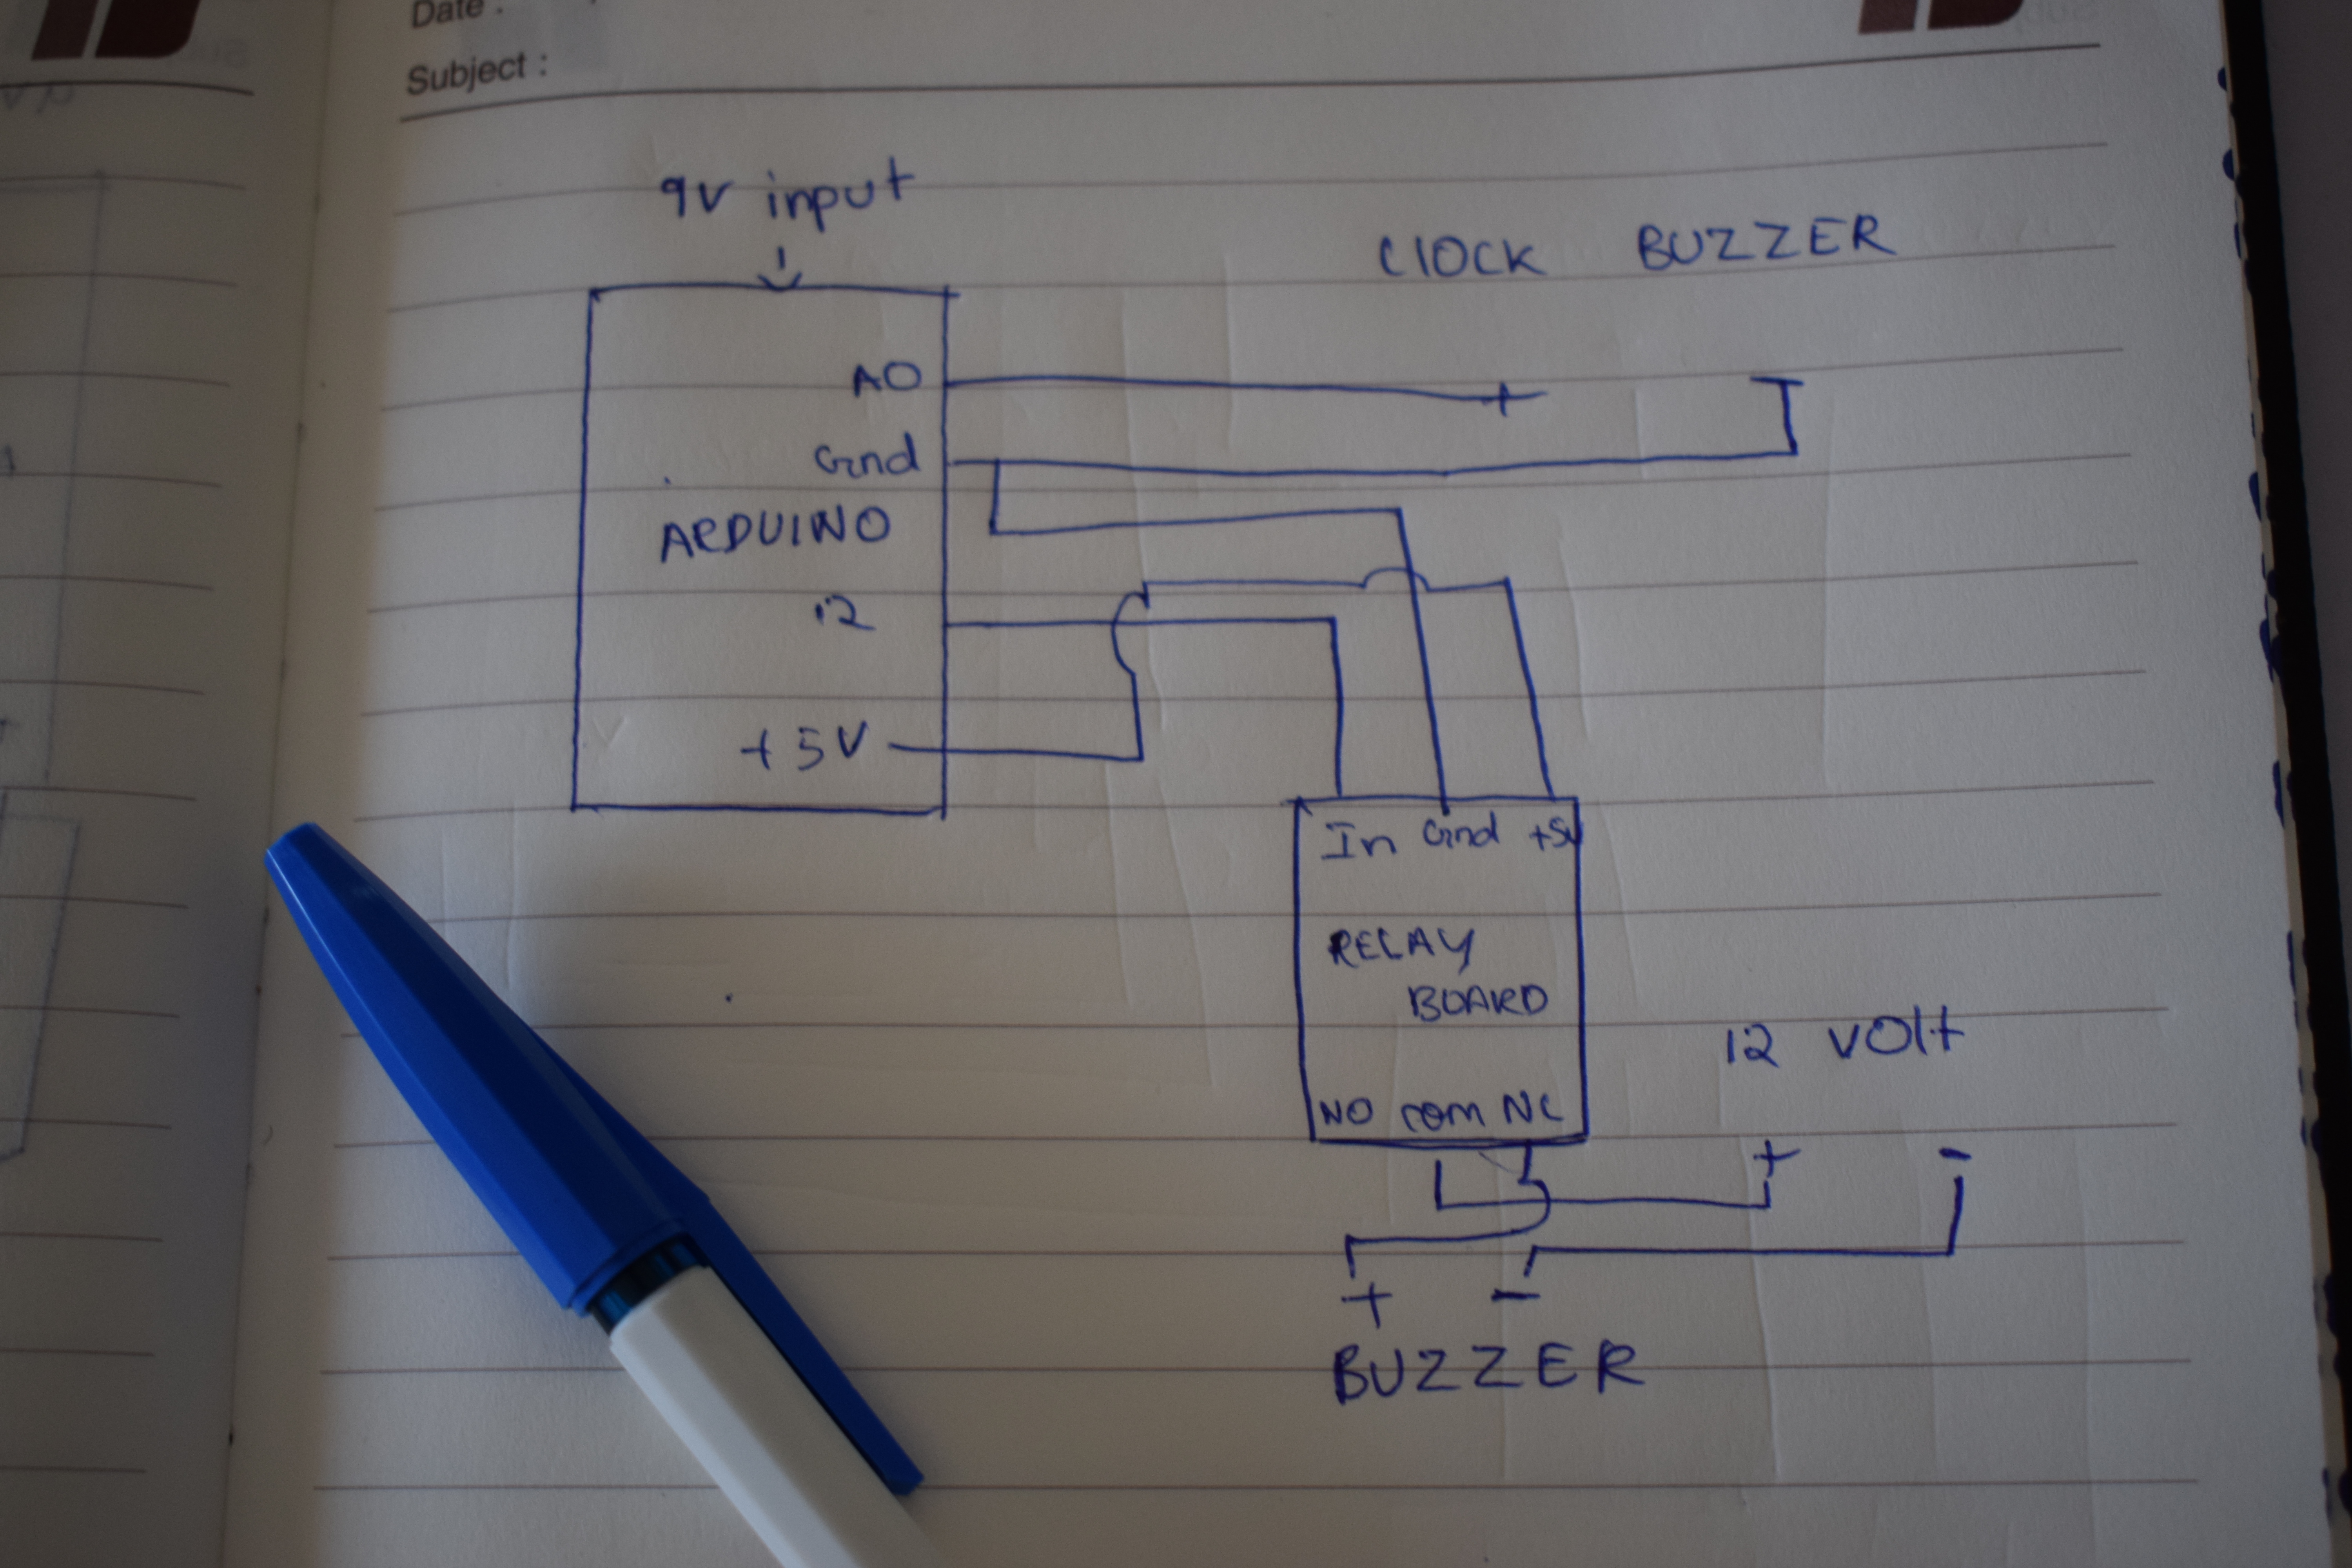 Date :
Subject :
9V input
CLOCK BUZZER
A0
Gnd
ARDUINO
12
+5V
In Gnd +5V
RELAY
BOARD
12 VOLT
NO com NC
+ -
+ -
BUZZER